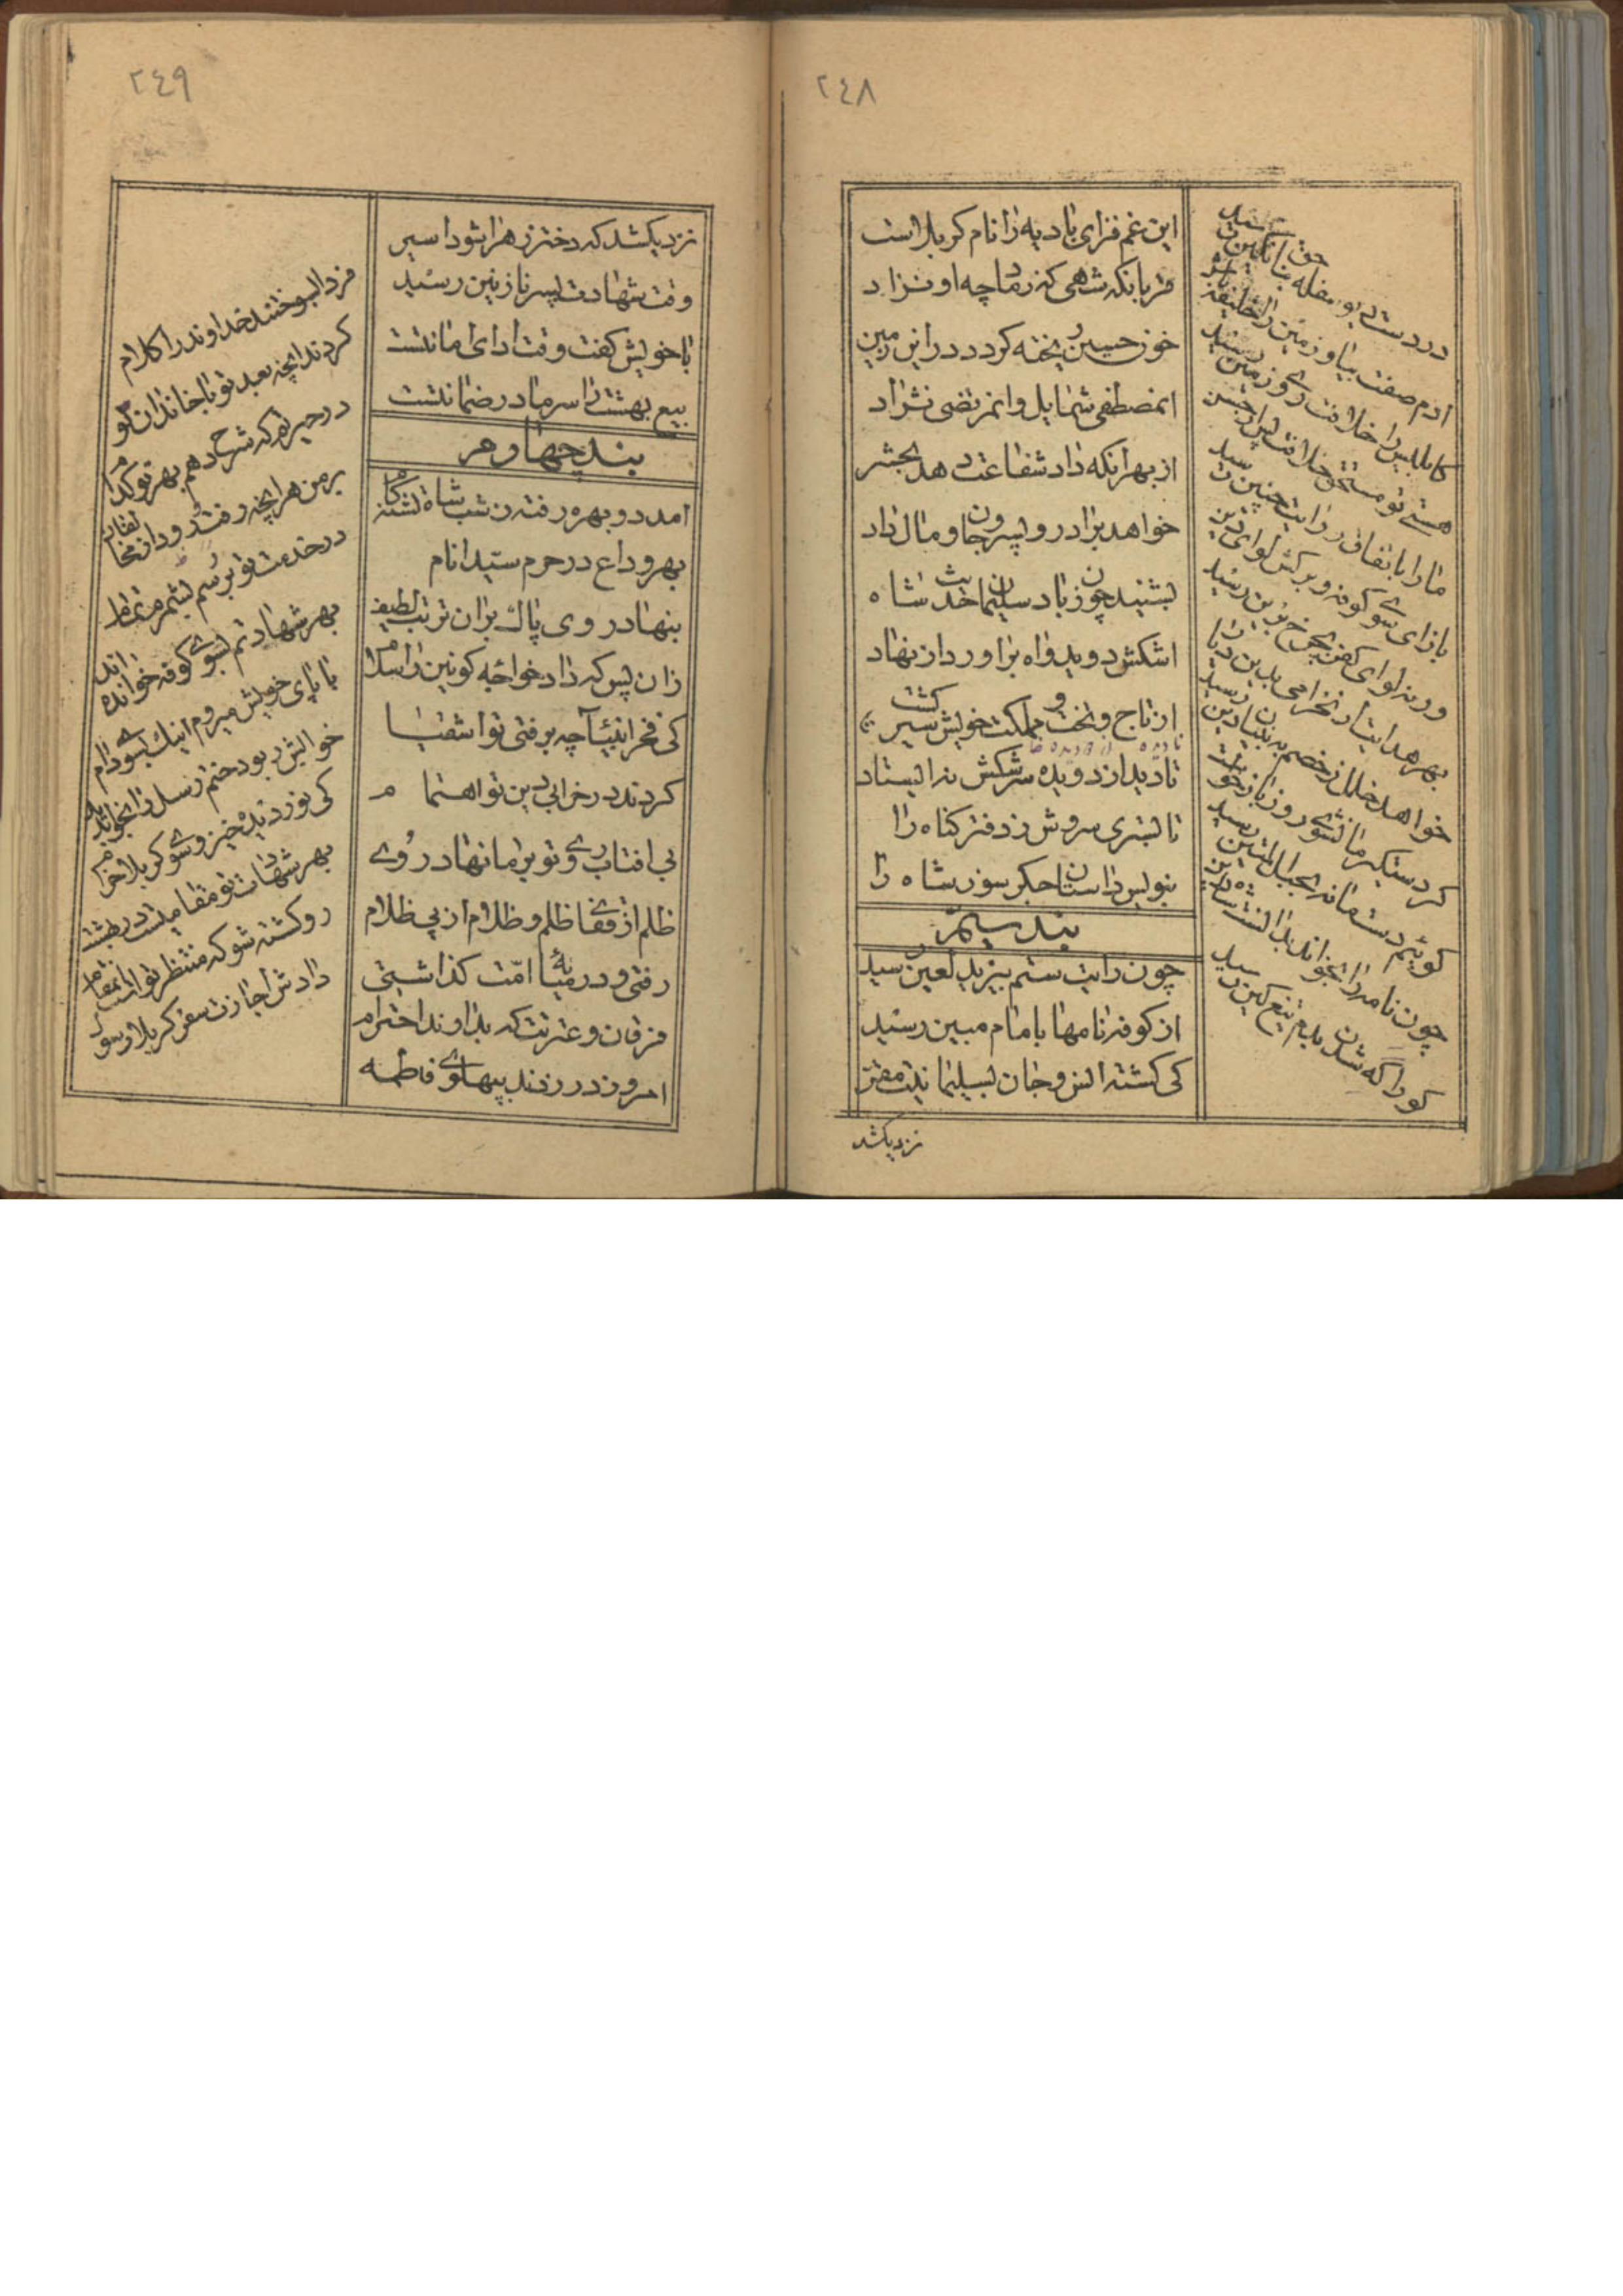 ٢٤٨
این غم فزای بادیه را نام کربلاست
قربانکه شهی که زماچه او نزاد
خون حسین ریخته کردد دراین زمین
انمصطفی شمایل وانمرتضی نژاد
از بهر انکه داد شفاعت دهد بحشر
خواهد برادر و پسر و جان و مال داد
بشنید چون ز باد سلیمان حدیث شاه
اشکش دوید واه براورد از نهاد
از تاج و تخت و مملکت خویش سیر کشت
تا دید از دو دیده سرشکش نه ایستاد
تا بستری سروش ز دفتر کناه را
بنویس داستان جکر سوز شاه را
بند سیم
چون رایت ستم بیزید لعین رسید
از کوفه نامها بامام مبین رسید
کی کشته انس و جان بسلیمانیت مقر
نزدیکشد
در دست دیو سفله نکین رسید
ادم صفت بیا و زمین را خلیفه باش
کابلیس را خلافت روی زمین رسید
هستی تو مستحق خلافت پس از حسن
ما را باتفاق رایت چنین رسید
بازای سوی کوفه و برکش لوای دین
ورنه لوای کفر بچرخ برین رسید
بهر هدایت ار نخرامی بدین دیار
خواهد خلل ز خصم به بنیان دین رسید
کر دستکیر ما نشوی روز بازخواست
کوئیم دست ما نه بحبل المتین رسید
چون نامه را بخواند بدانست شاه دین
کو را که شدن بدم تیغ کین رسید
٢٤٩
نزدیکشد که دختر زهرا شود اسیر
وقت شهادت پسر نازنین رسید
با خویش کفت وقت ادای امانتست
بیع بهشت را سر ما در ضمانتست
بند چهارم
امد دو بهره رفته ز شب شاه تشنه کام
بهر وداع در حرم سید انام
بنهاد روی پاک بران تربت لطیف
زان پس که داد خواجه کونین را سلام
کی فخر انبیا چه برفتی تو اشقیا
کردند در خرابی دین تو اهتمام
بی افتاب روی تو بر ما نهاد روی
ظلم از قفای ظلم و ظلام از پی ظلام
رفتی و در میانه امّت کذاشتی
فرقان و عترتت که بداوند احترام
امروز در زدند بپهلوی فاطمه
فردا بسوختند خداوند را کلام
کردند انچه بعد تو با خاندان تو
در حیرتم که شرح دهم بهر تو کدام
بر من هر انچه رفت و رود از مخالفان
در خدمت تو برسم بشمرم تمام
بهر شهادتم بسوی کوفه خوانده اند
با پای خویش میروم اینک بسوی دام
خوابش ربود ختم رسل را بخواب دید
کی نور دیده خیز و سوی کربلا خرام
بهر شهادت تو مقامیست در بهشت
رو کشته شو که منتظر تو است انمقام
دادش اجازت سفر کربلا رسول